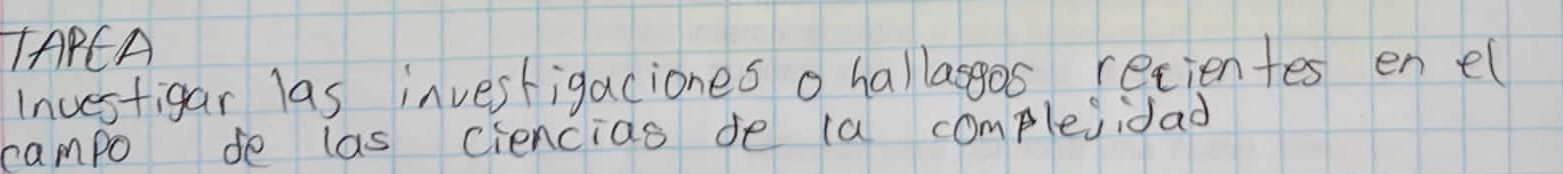 TAREA
Investigar las investigaciones o hallasgos recientes en el
campo de las ciencias de la complejidad